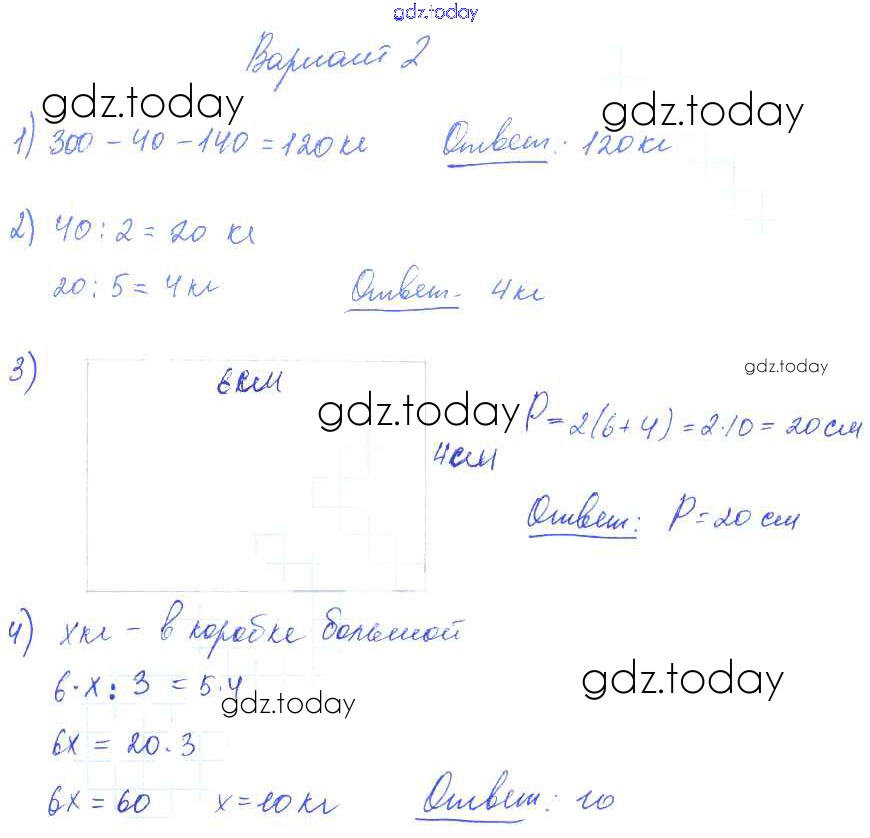 gdz.today
Вариант 2
gdz.today gdz.today
1) 300 - 40 - 140 = 120 кг Ответ: 120 кг
2) 40 : 2 = 20 кг
20 : 5 = 4 кг Ответ - 4 кг
3)
6 см
gdz.today
gdz.today
P = 2(6 + 4) = 2 · 10 = 20 см
4 см
Ответ: P = 20 см
4) x кг - в коробке большой
6 · x : 3 = 5 · 4
gdz.today gdz.today
6x = 20 · 3
6x = 60 x = 10 кг Ответ: 10